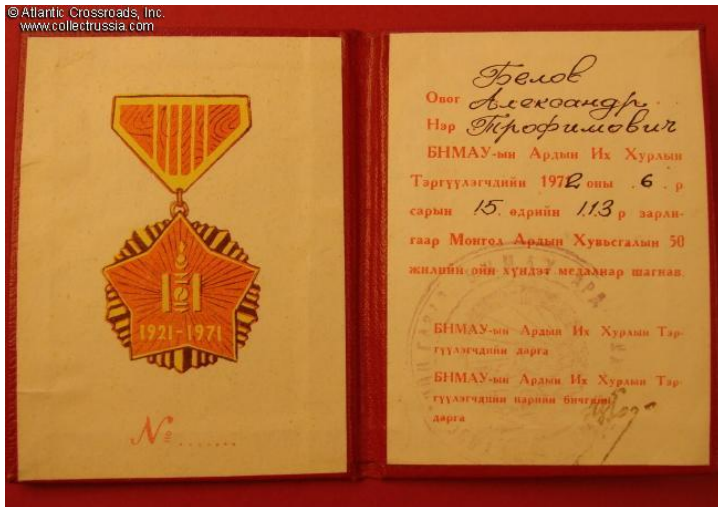 © Atlantic Crossroads, Inc.
www.collectrussia.com
1921-1971
№
Белов
Овог Александр
Нэр Трофимович
БНМАУ-ын Ардын Их Хурлын
Тэргүүлэгчдийн 1972 оны 6 р
сарын 15. өдрийн 113 р зарли-
гаар Монгол Ардын Хувьсгалын 50
жилийн ойн хүндэт медалиар шагнав.
БНМАУ-ын Ардын Их Хурлын Тэр-
гүүлэгчдийн дарга
БНМАУ-ын Ардын Их Хурлын Тэр-
гүүлэгчдийн нарийн бичгийн
дарга